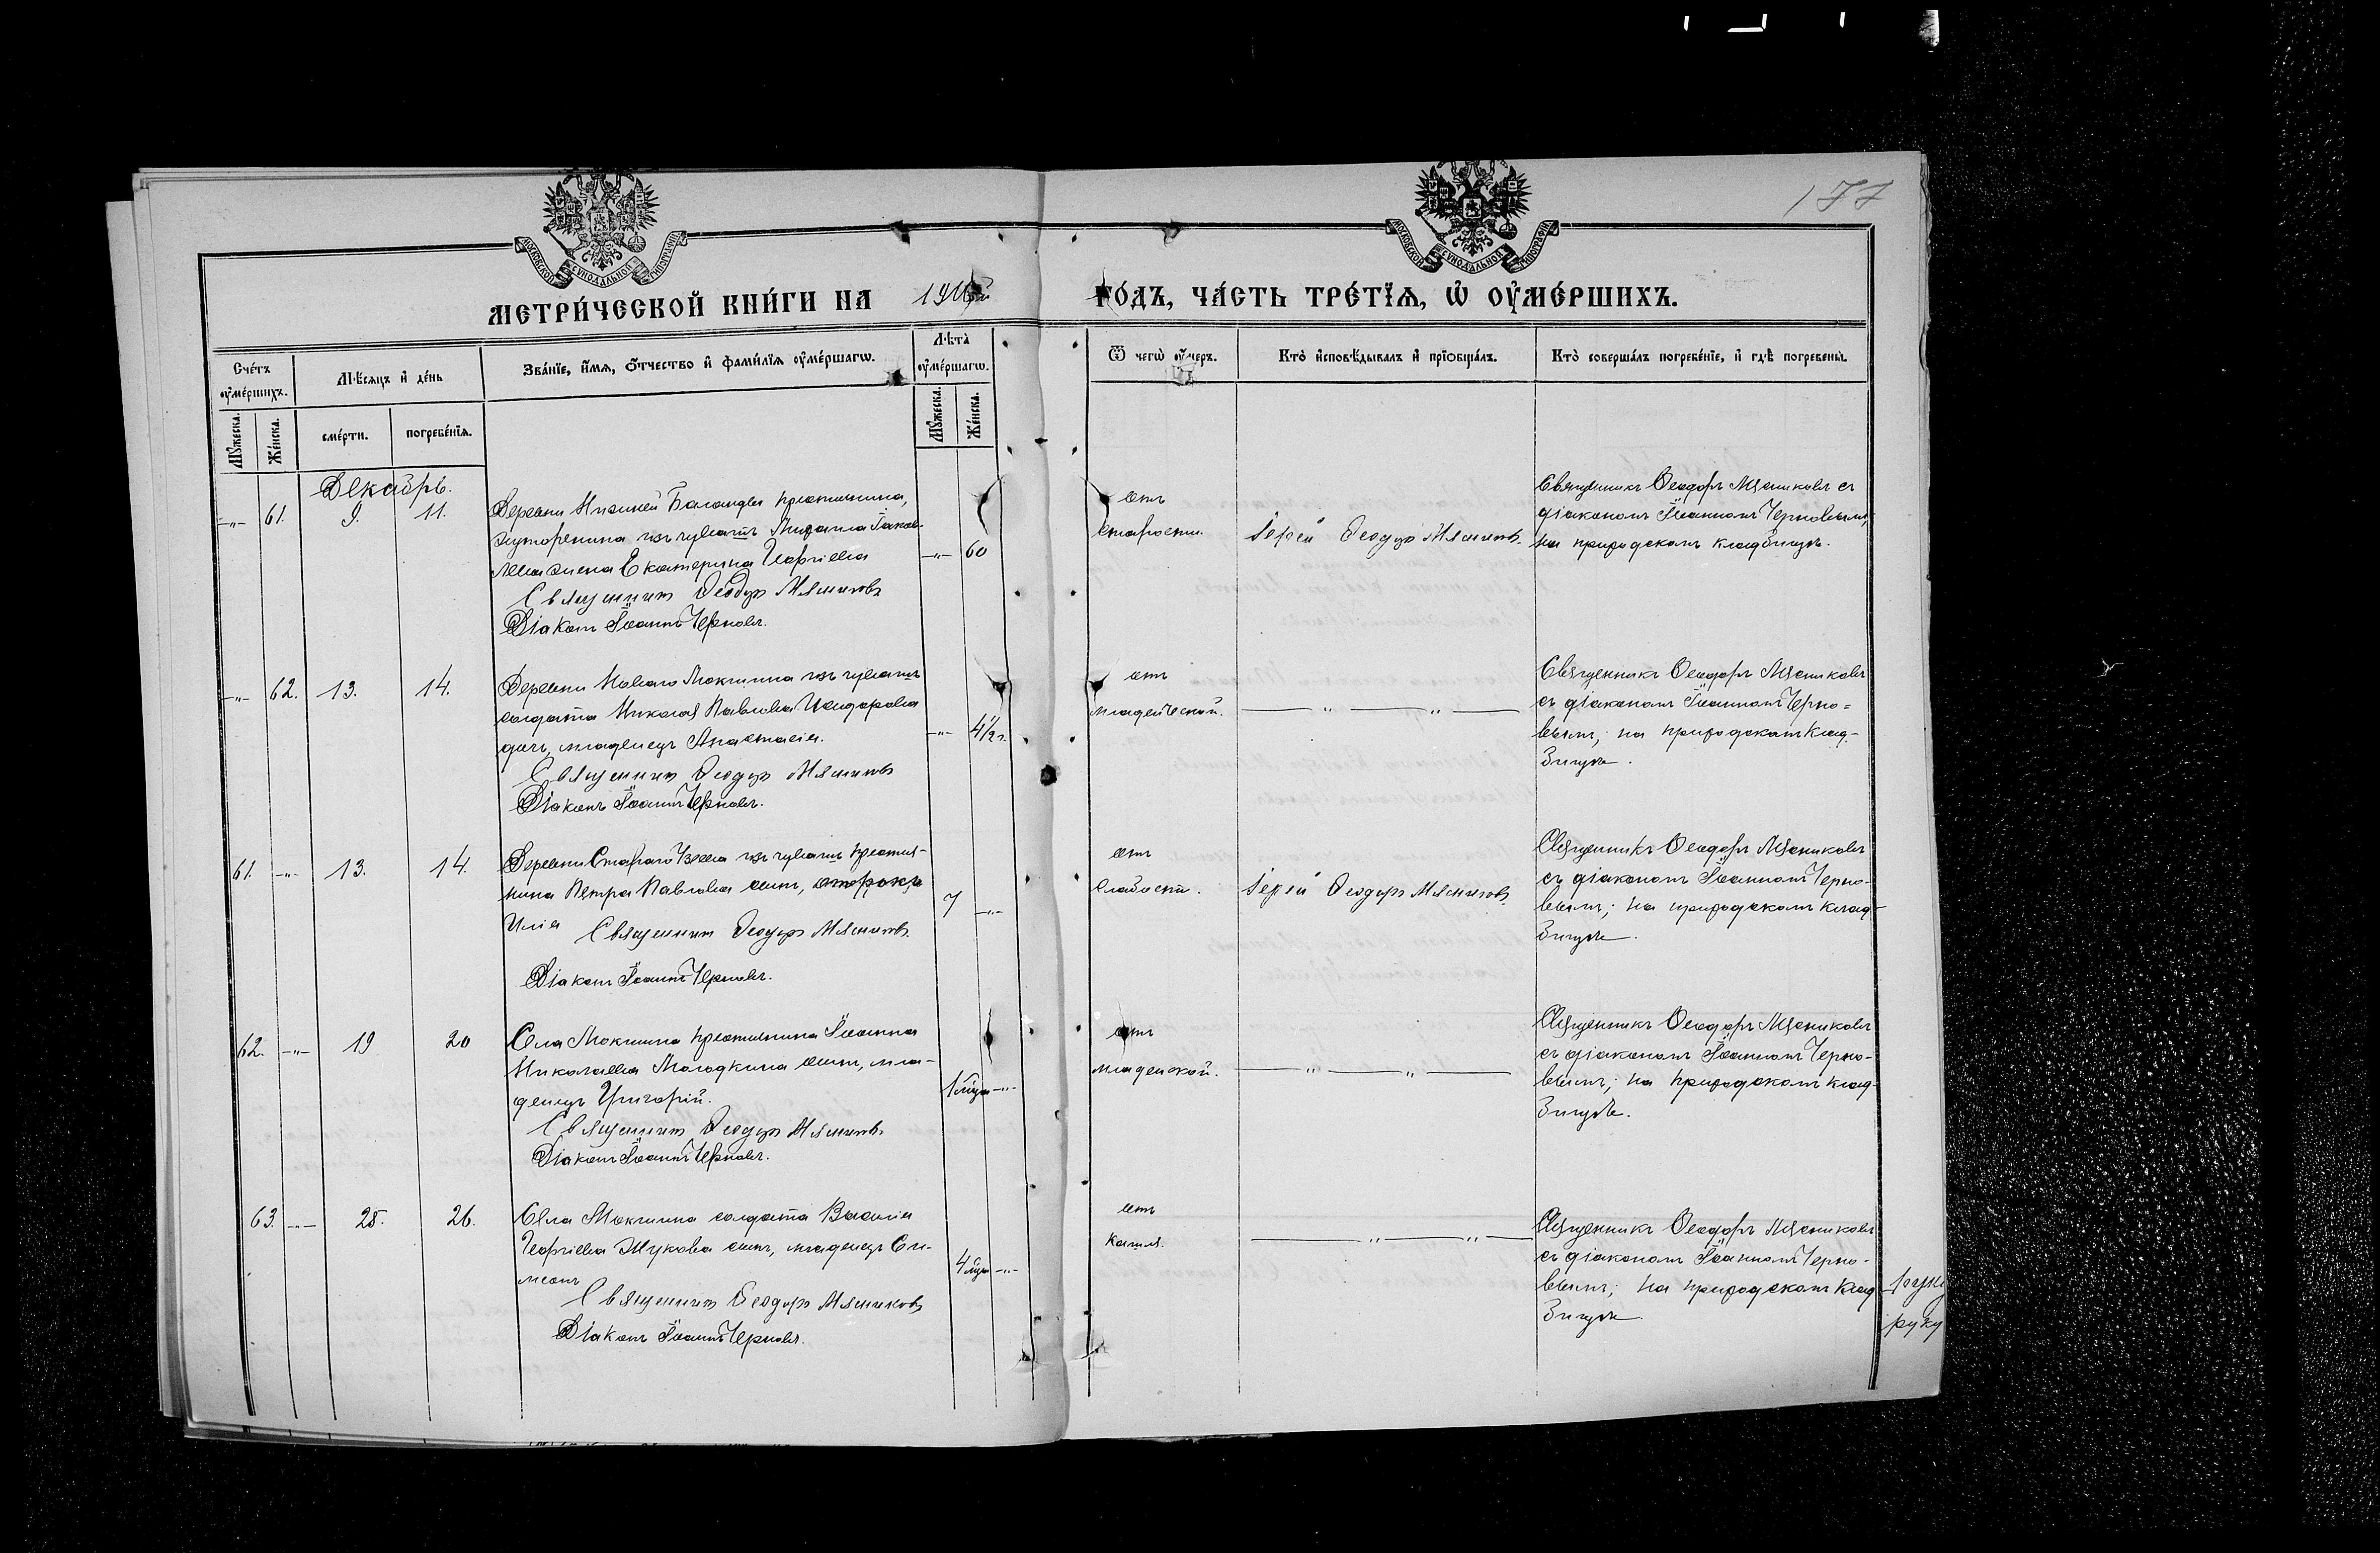 177
МОСКОВСКОЙ СѴНОДАЛЬНОЙ ТИПОГРАФІИ
МОСКОВСКОЙ СѴНОДАЛЬНОЙ ТИПОГРАФІИ
МЕТРИ́ЧЕСКОЙ КНИ́ГИ НА
ГО́ДЪ, ЧА́СТЬ ТРЕ́ТЇѦ, Ѡ҆ ОУ҆МЕ́РШИХЪ.
Сче́тъ оу҆ме́ршихъ.
Мѣ́сяцъ и҆ де́нь
Зва́нїе, и҆́мѧ, ѻ҆́тчество и҆ фами́лїѧ оу҆ме́ршагѡ.
Лѣ́та оу҆ме́ршагѡ.
Ѿ чегѡ̀ оу҆́меръ.
Кто̀ и҆сповѣ́дывалъ и҆ прїѻбща́лъ.
Кто̀ соверша́лъ погребе́нїе, и҆ гдѣ̀ погребены̀.
Мꙋ́жеска.
Же́нска.
сме́рти.
погребе́нїѧ.
Мꙋ́жеска.
Же́нска.
Декабрь.
-„- 61. 9. 11.
Деревни Нижней Баланды крестьянина,
изъ чувашъ Михаила Яков-
лева жена Екатерина Георгіева
-„- 60
Священникъ Ѳеодоръ Мясниковъ
Діаконъ Іоаннъ Черновъ.
отъ
старости.
Іерей Ѳеодоръ Мясниковъ.
Священникъ Ѳеодоръ Мясниковъ съ
діакономъ Іоанномъ Черновымъ,
на приходскомъ кладбищѣ.
-„- 62. 13. 14.
Деревни Новаго Мокшина изъ чувашъ
солдата Николая Павлова Исидорова
дочь, младенецъ Анастасія.
-„- 4½ г.
Священникъ Ѳеодоръ Мясниковъ
Діаконъ Іоаннъ Черновъ.
отъ
младенческой.
— „ — „ —
Священникъ Ѳеодоръ Мясниковъ
съ діакономъ Іоанномъ Черно=
вымъ; на приходскомъ клад-
бищѣ.
61. -„- 13. 14.
Деревни Стараго изъ чувашъ крестья-
нина Петра Павлова сынъ, отрокъ
Илія
7 -„-
Священникъ Ѳеодоръ Мясниковъ
Діаконъ Іоаннъ Черновъ.
отъ
слабости.
Іерей Ѳеодоръ Мясниковъ.
Священникъ Ѳеодоръ Мясниковъ
съ діакономъ Іоанномъ Черно-
вымъ; на приходскомъ клад-
бищѣ.
62. -„- 19 20
Села Мокшина крестьянина Іоанна
Николаева Молодкина сынъ, мла-
денецъ Григорій.
1 мѣся -„-
Священникъ Ѳеодоръ Мясниковъ.
Діаконъ Іоаннъ Черновъ.
отъ
младенской.
— „ — „ —
Священникъ Ѳеодоръ Мясниковъ
съ діакономъ Іоанномъ Черно-
вымъ; на приходскомъ клад-
бищѣ.
63. -„- 25. 26.
Села Мокшина солдата Василія
Георгіева Жукова сынъ, младенецъ Си-
меонъ
4 мѣся -„-
Священникъ Ѳеодоръ Мясниковъ
Діаконъ Іоаннъ Черновъ.
отъ
кашля.
— „ — „ —
Священникъ Ѳеодоръ Мясниковъ
съ діакономъ Іоанномъ Черно-
вымъ; на приходскомъ клад
бищѣ.
руку